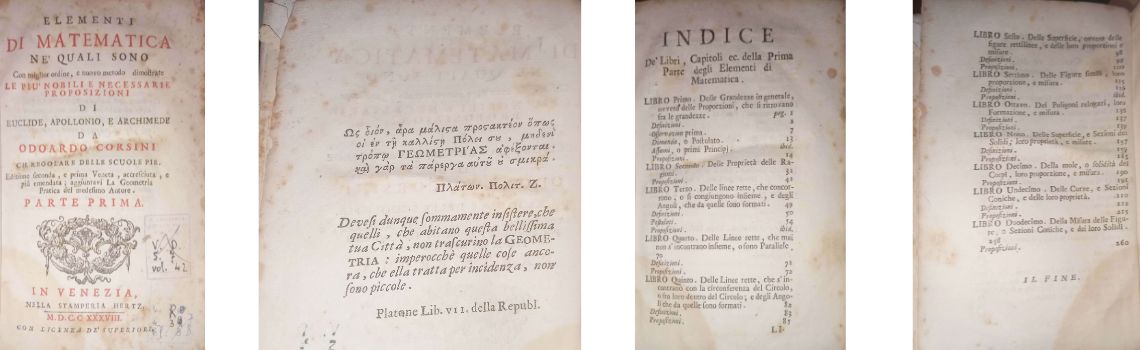 ELEMENTI
DI MATEMATICA
NE' QUALI SONO
Con miglior ordine, e nuovo metodo dimostrate
LE PIU' NOBILI E NECESSARIE
PROPOSIZIONI
DI
EUCLIDE, APOLLONIO, E ARCHIMEDE
DA
ODOARDO CORSINI
CH. REGOLARE DELLE SCUOLE PIE.
Edizione seconda, e prima Veneta, accresciuta, e
più emendata; aggiuntavi La Geometria
Pratica del medesimo Autore.
PARTE PRIMA.
IN VENEZIA,
NELLA STAMPERIA HERTZ,
M.D.CC XXXVIII.
CON LICENZA DE' SUPERIORI.
vol. 42
Ως διόν, ἄρα μάλιςα προςακτέον ὅπως
οἱ ἐν τῇ καλλίςῃ Πόλει σȣ, μηδενὶ
τρόπῳ ΓΕΩΜΕΤΡΙΑΣ ἀφέξονται.
καὶ γὰρ τὰ πάρεργα αὐτοῦ ȣ̓ σμικρά.
Πλάτων. Πολιτ. Ζ.
Devesi dunque sommamente insistere, che
quelli, che abitano questa bellissima
tua Città, non trascurino la GEOME-
TRIA: imperocchè quelle cose anco-
ra, che ella tratta per incidenza, non
sono piccole.
Platone Lib. VII. della Republ.
INDICE
De' Libri, Capitoli ec. della Prima
Parte degli Elementi di
Matematica.
LIBRO Primo. Delle Grandezze in generale,
ovvero delle Proporzioni, che si ritrovano
fra le grandezze. pag. 1
Definizioni. 2
Osservazion prima. 7
Dimanda, o Postulato. 13
Assiomi, o primi Principj. ibid.
Proposizioni. 14
LIBRO Secondo. Delle Proprietà delle Ra-
gioni. 32
Proposizioni. 42
LIBRO Terzo. Delle linee rette, che concor-
rono, o si congiungono insieme, e degli
Angoli, che da quelle sono formati. 49
Definizioni. 50
Postulati. 54
Proposizioni. ibid.
LIBRO Quarto. Delle Linee rette, che mai
non s'incontrano insieme, o sono Parallele
. 70
Definizioni. 71
Proposizioni. 72
LIBRO Quinto. Delle Linee rette, che s'in-
contrano con la circonferenza del Circolo,
o fra loro dentro del Circolo; e degli Ango-
li che da quelle sono formati. 82
Definizioni. 83
Proposizioni. 85
LI-
LIBRO Sesto. Delle Superficie, ovvero delle
figure rettilinee, e delle loro proporzioni e
misure. 98
Definizioni. 98
Proposizioni. 100
LIBRO Settimo. Delle Figure simili, loro
proporzione, e misura. 115
Definizioni. 116
Proposizioni. ibid.
LIBRO Ottavo. Dei Poligoni regolari, loro
Formazione, e misura. 136
Definizioni. 137
Proposizioni. 139
LIBRO Nono. Delle Superficie, e Sezioni dei
Solidi; loro proprietà, e misura. 157
Definizioni. 159
Proposizioni. 165
LIBRO Decimo. Della mole, o solidità dei
Corpi, loro proporzione, e misura. 190
Definizioni. 191
Proposizioni. 195
LIBRO Undecimo. Delle Curve, e Sezioni
Coniche, e delle loro proprietà. 210
Definizioni. 212
Proposizioni. 215
LIBRO Duodecimo. Della Misura delle Figu-
re, o Sezioni Coniche, e dai loro Solidi.
258
Proposizioni. 260
IL FINE.